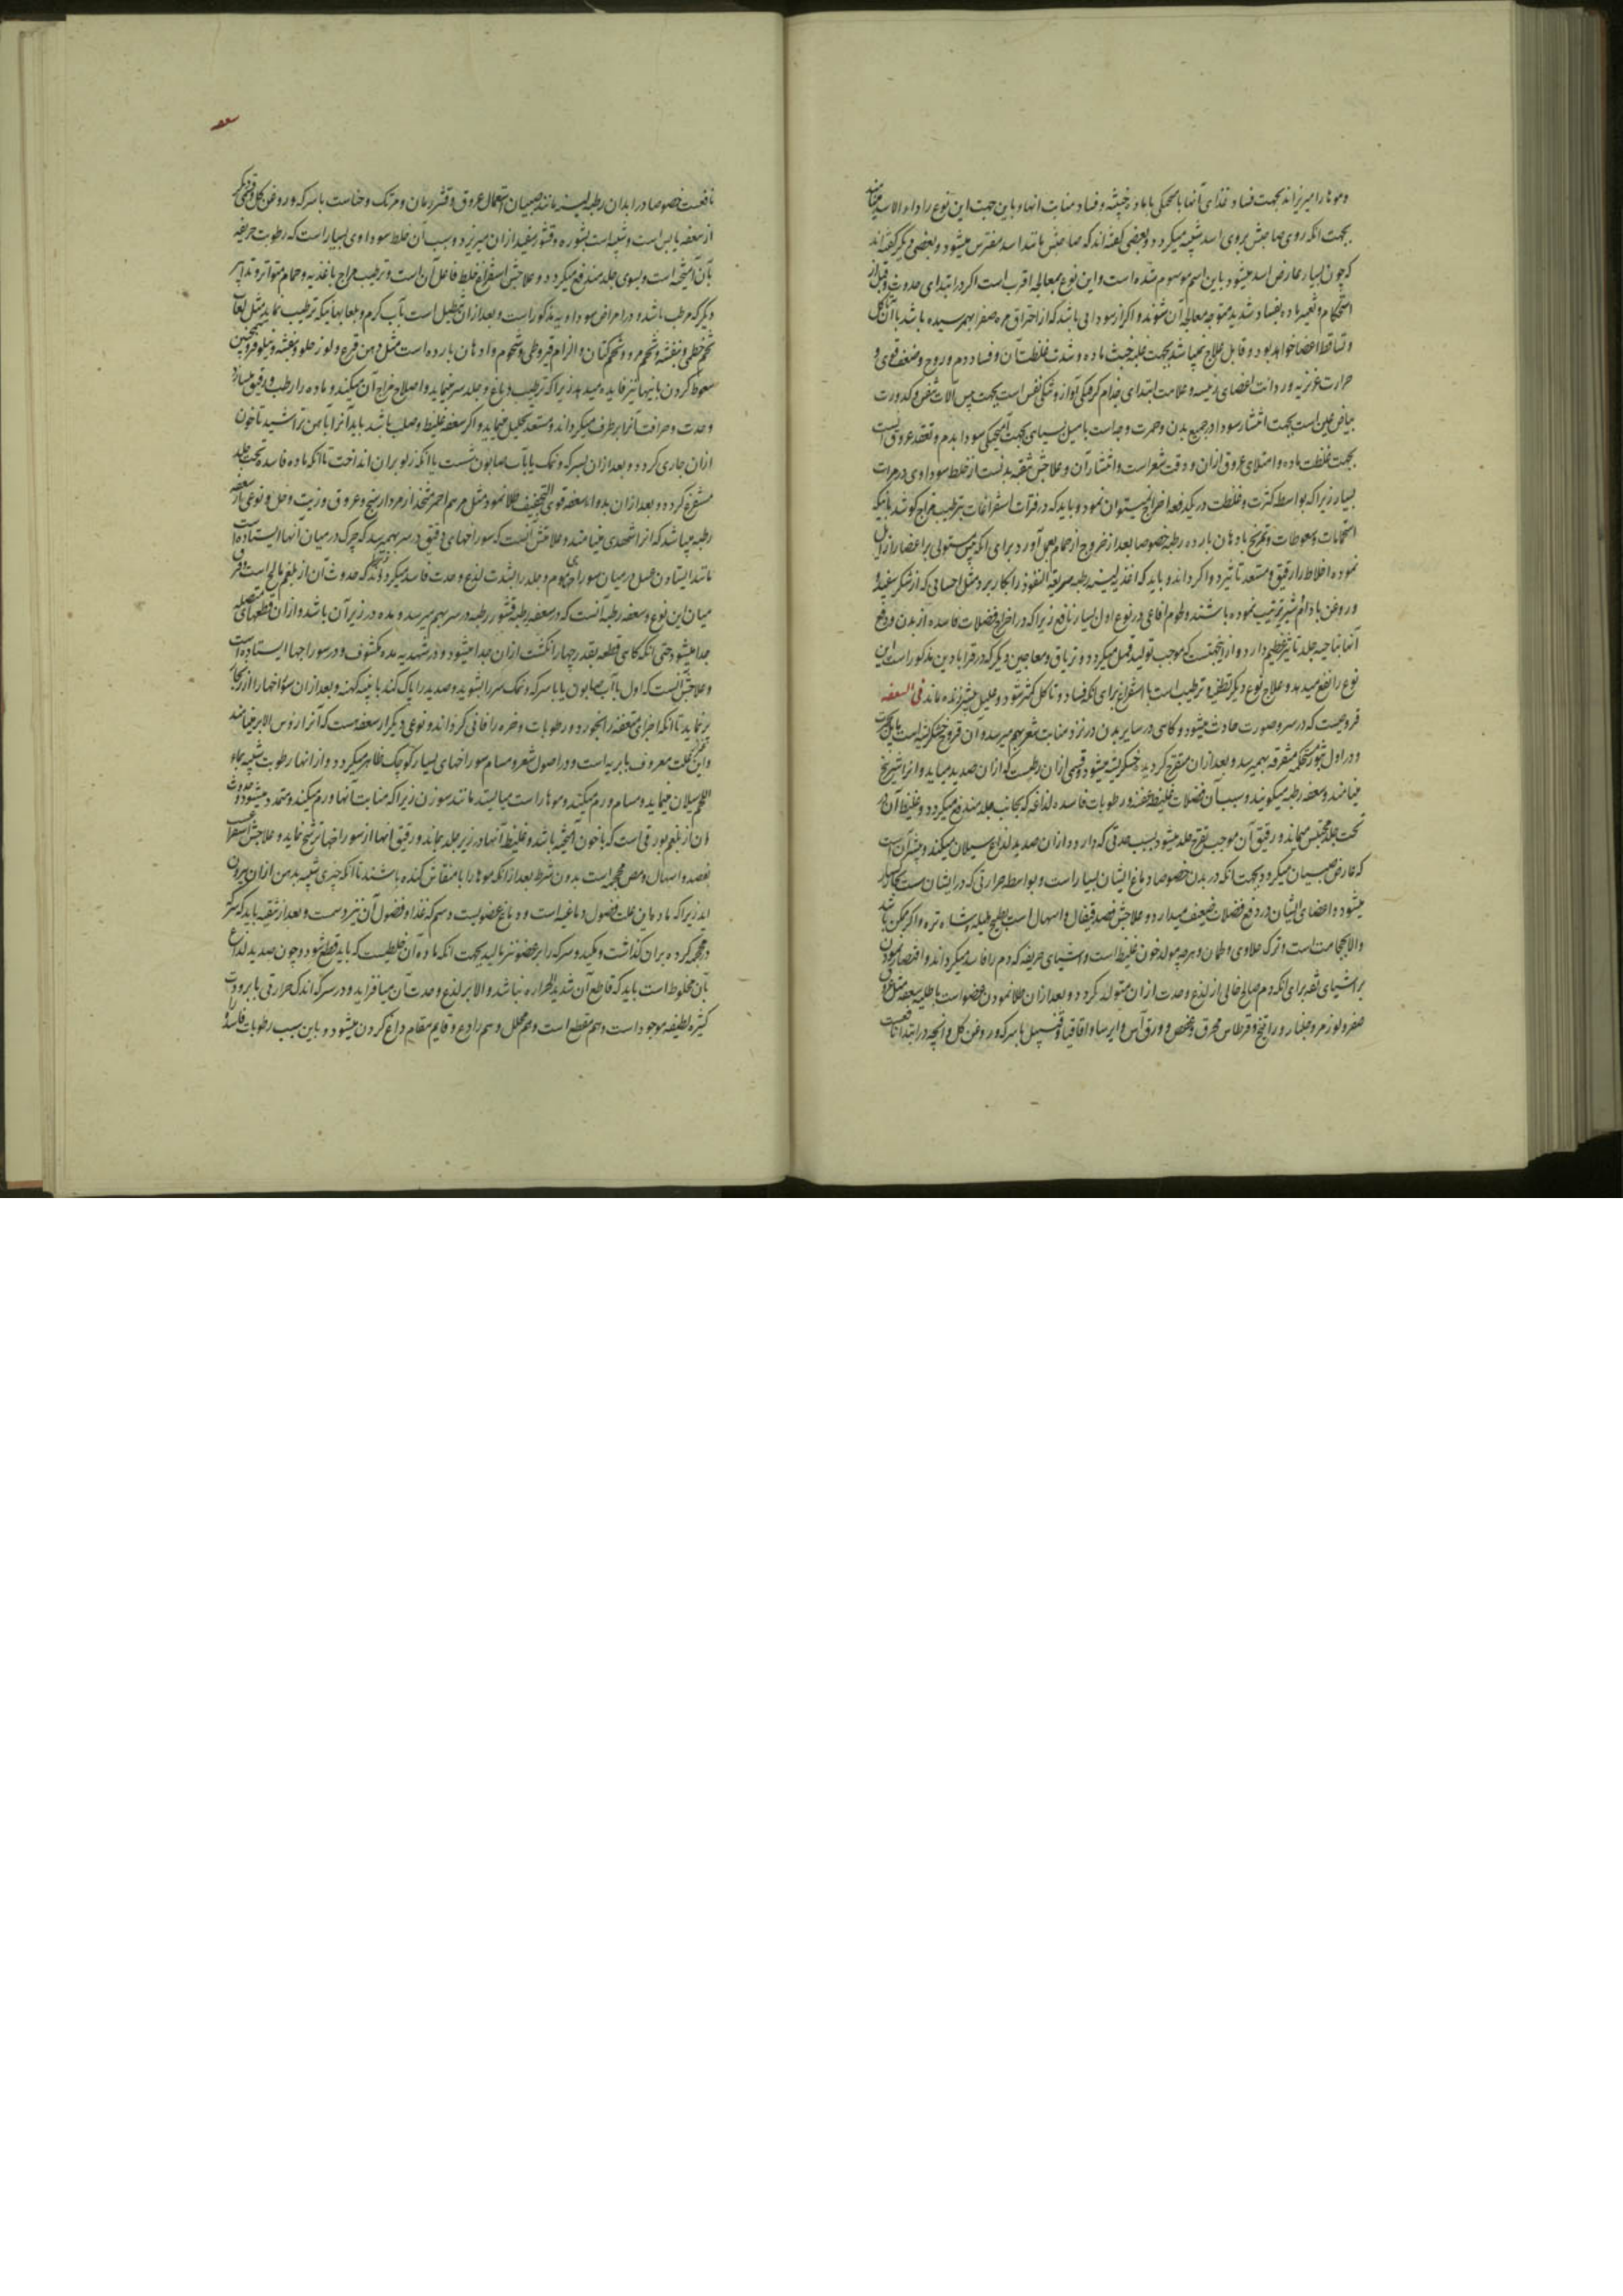 و موها را میریزاند بجهت فساد غذای آنها با محیکی با ماده خبیثه و فساد منابت انها و باین جهت این نوع را داء الاسد
بجهت انکه روی صاحبش بروی اسد شبیه میکردد و بعضی کفته‌اند که صاحبش مانند اسد مفترس میشود و بعضی دیکر کفته‌اند
که چون بسیار عارض اسد میشود باین اسم موسوم شده است و این نوع بمعالجه اقرب است اکر در ابتدای حدوث و قبل از
استحکام و تغیر ماده بفساد شدید متوجه معالجه آن شوند و اکر از سودایی باشد که از احتراق مره صفرا بهمرسیده باشد با تاکل
و تساقط اعضا خواهد بود و قابل علاج نمیباشد بجهت غلبه خبث ماده و شدت غلظت آن و فساد دم و روح و ضعف قوی و
حرارت غریزیه و ردائت اعضای رئیسه و علامت ابتدای جذام کرفتکی آواز و تنکی نفس است بجهت یبس آلات تنفس و کدورت
بیاض عین است بجهت انتشار سودا در جمیع بدن و حمرت وجه است با میل بسیاهی بجهت آمیختکی سودا بدم و تعقد عروق است
بجهت غلظت ماده و امتلای عروق ازان و دقت شعر است و انتشار آن و علاجش تنقیه بدنست از خلط سوداوی در مرات
بسیار زیرا که بواسطه کثرت و غلظت در یکدفعه اخراج نمیتوان نمود و باید که در فترات استفراغات بترطیب مزاج کوشد بآنکه
استحمامات و سعوطات و تمریخ بادهان بارده رطبه خصوصا بعد از خروج از حمام بعمل آورد برای انکه یبس مستولی بر اعضا را زایل
نموده اخلاط را رقیق و مستعد تاثیر دوا کرداند و باید که اغذیه لینه رطبه سریعة النفوذ را بکار برد مثل احسائی که از شکر سفید
و روغن بادام و شیر ترتیب نموده باشند و لحوم افاعی در نوع اول بسیار نافع زیرا که در اخراج فضلات فاسده از بدن و دفع
آنها بناحیه جلد تاثیر عظیم دارد و ازینجهتست که موجب تولید قمل میکردد و تریاق و معاجین دیکر که در قرابادین مذکور است این
نوع را نفع میدهد و علاج نوع دیکر تطفیه و ترطیب است با استفراغ برای انکه فساد و تاکل کمتر شود و علیل بیشتر زنده ماند فی السعفه
قروحیست که در سر و صورت حادث میشود و کاهی در سایر بدن در نزد منابت شعر بهم میرسد و آن قروح خشکریشه است
و در اول بثور مستحکمه متفرقه بهمیرسد و بعد ازان متقرح کردیده خشکریشه میشود و قسمی ازان رطبست که ازان صدید میاید و انرا شیرینج
مینامند و سعفه رطبه میکویند و سبب آن فضلات غلیظ عفنه و رطوبات فاسده لذاعه که بجانب جلد مندفع میکردد و غلیظ آن در
تحت جلد محتبس میماند و رقیق آن موجب تقرح جلد میشود بسبب حدتی که دارد و ازان صدید لذاع سیلان میکند و بیشتر آن است
که عارض صبیان میکردد بجهت انکه در بدن خصوصا دماغ ایشان بسیار است و بواسطه حرارتی که در ایشان هست
میشود و اعضای ایشان در دفع فضلات ضعیف میدارد و علاجش فصد قیفال و اسهال است بطبیخ هلیله و شاهتره و اکر ممکن باشد
و الا حجامت است و ترک حلاوی و لحمان و هرچه مولد خون غلیظ است و اشیای حریفه که دم را فاسد میکرداند و اقتصار نمودن
بر اشیای تفه برای انکه دم صالح خالی از لذع و حدت ازان متولد کردد و بعد ازان طلا نمودن عضو است باطلیه سعفه مثل عروق
صفر و لوز مر و جلنار و راتینج و قرطاس محرق و عفص و ورق آس و ایرسا و اقاقیا و قنبیل با سرکه و روغن کل و انچه در ابتدا نافعست
سعفه
نافعست خصوصا در ابدان رطبه لینه مانند صبیان استعمال عروق و قشر رمان و مرتک و حناست با سرکه و روغن کل و قسمی دیکر
از سعفه یابس است و شبیه است بشوره و قشور سفید ازان میریزد و سبب آن خلط سوداوی بسیار است که رطوبت حریفه
بآن آمیخته است و بسوی جلد مندفع میکردد و علاجش استفراغ خلط فاعل آن است و ترطیب مزاج باغذیه و حمام متواتر و تدابیر
دیکر که مرطب باشد و در امراض سوداویه مذکور است و بعد ازان تنطیل است بآب کرم و بلعابهائیکه ترطیب نماید مثل لعاب
تخم خطمی و بنفشه و تخم مرو و تخم کتان و الزام قیروطی و شحوم و ادهان بارده است مثل دهن قرع و لوز حلو و بنفشه و نیلوفر و همچنین
سعوط کردن باینها نیز فایده میدهد زیرا که ترطیب دماغ و جلد سر مینماید و اصلاح مزاج آن میکند و ماده را رطب و رقیق میسازد
و حدت و حرافت آنرا برطرف میکرداند و مستعد تحلیل مینماید و اکر سعفه غلیظ و صلب باشد باید آنرا بآهن تراشید تا خون
ازان جاری کردد و بعد ازان بسرکه و نمک یا بآب صابون شست یا انکه زلو بران انداخت تا آنکه ماده فاسده تحت جلد
مستفرغ کردد و بعد ازان بدواء سعفه قوی التجفیف طلا نمود مثل مرهم احمر متخذ از مردارسنج و عروق و زیت و خل و نوعی از سعفه
رطبه میباشد که انرا شهدی مینامند و علامتش آنست که سوراخهای دقیق در سر بهمرسد که چرک در میان آنها ایستاده است
مانند ایستادن عسل در میان سوراخهای موم و جلد را بشدت لذع و حدت فاسد میکرداند که حدوث آن از بلغم مالح است و فرق
میان این نوع و سعفه رطبه آنست که در سعفه رطبه قشور رطبه در سر بهم میرسد و مده در زیر آن باشد و ازان قطعهای متصله
جدا میشود حتی انکه کاهی قطعه بقدر چهار انکشت ازان جدا میشود و در شهدیه مده مکشوف و در سوراخها ایستاده است
و علاجش آنست که اول بآب صابون یا با سرکه و نمک سر را بشویند و صدید را پاک کنند با پنبه کهنه و بعد ازان سوراخها را از زنجار
پر نماید تا انکه اجزای متعفنه را بخورد و رطوبات وضره را فانی کرداند و نوعی دیکر از سعفه هست که آنرا رؤس الابر مینامند
و این علت معروف بابریه است و در اصول شعر و مسام سوراخهای بسیار کوچک ظاهر میکردد و از انها رطوبت شبیه بماء
اللحم سیلان مینماید و مسام ورم میکند و موها راست میایستد مانند سوزن زیرا که منابت آنها ورم میکند و متمدد میشود و حدوث
آن از بلغم بورقی است که با خون آمیخته باشد و غلیظ آنها در زیر جلد بماند و رقیق انها از سوراخها ترشح نماید و علاجش استفراغست
بفصد و اسهال و مص محجمه است بدون شرط بعد از انکه موها را با منقاش کنده باشند تا انکه چیزی شبیه بدهن ازان بیرون
آید زیرا که ماده این علت فضول دماغیه است و دماغ عضویست دسم که غذا و فضول آن نیز دسمست و بعد از تنقیه باید که سرکه
در محجمه کرده بران کذاشت و مکید و سرکه را بر عضو نیز مالید بجهت انکه ماده آن خلطیست که باید قطع شود و چون صدید لذاع
بآن مخلوط است باید که قاطع آن شدید الحراره نباشد و الا بر لذع و حدت آن میافزاید و در سرکه اندک حرارتی با برودت
کثیره لطیفه موجود است و هم مقطع است و هم محلل و هم رادع و قایم مقام داغ کردن میشود و باین سبب رطوبات فاسده را